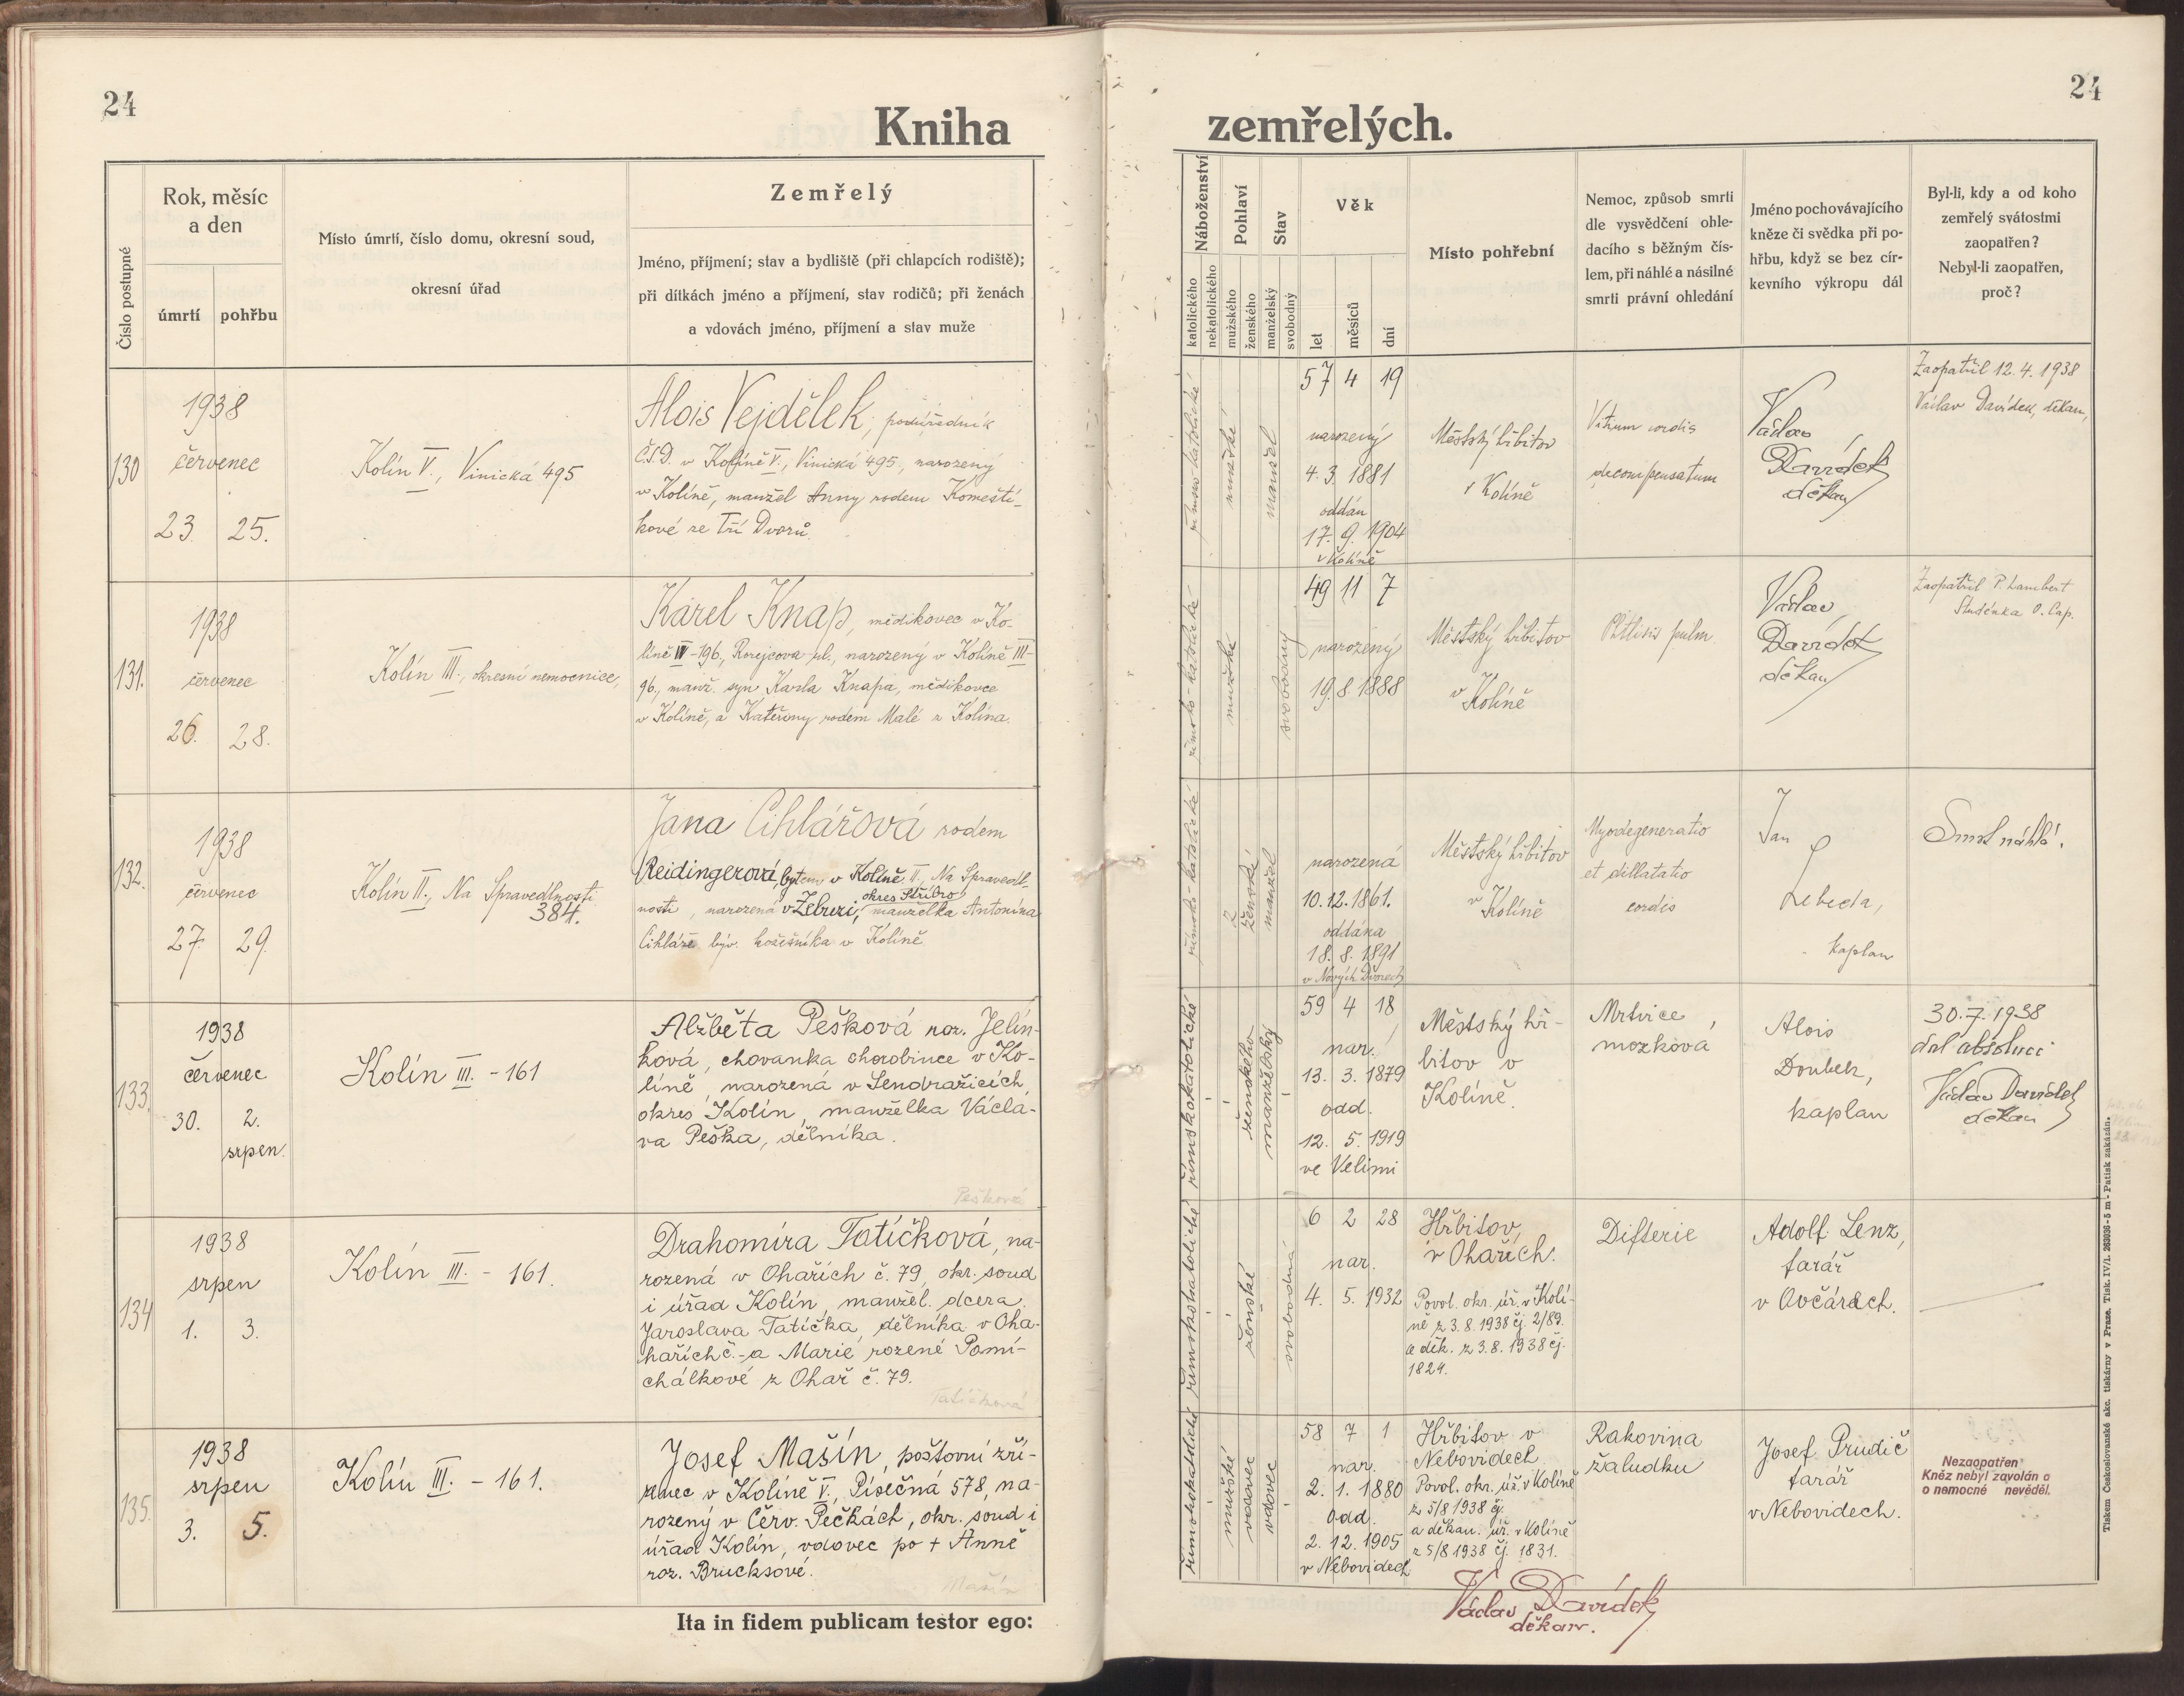 24
Kniha
Číslo postupné
Rok, měsíc
a den
úmrtí
pohřbu
Místo úmrtí, číslo domu, okresní soud,
okresní úřad
Zemřelý
Jméno, příjmení; stav a bydliště (při chlapcích rodiště);
při dítkách jméno a příjmení, stav rodičů; při ženách
a vdovách jméno, příjmení a stav muže
130
1938
červenec
23. 25.
Kolín V., Vinická 495
Alois Vejdělek, podúředník
Č.S.D. v Kolíně V., Vinická 495, narozený
v Kolíně, manžel Anny rodem Komešti-
kové ze Tří Dvorů.
131.
1938
červenec
26. 28.
Kolín III., okresní nemocnice,
Karel Knap, mědikovec v Ko-
líně IV-196, Rorejcova ul., narozený v Kolíně III-
96, manž. syn Karla Knapa, mědikovce
v Kolíně, a Kateřiny rodem Malé z Kolína.
132.
1938
červenec
27. 29.
Kolín II., Na Spravedlnosti
384.
Jana Cihlářová rodem
Reidingerová, bytem v Kolíně II., Na Spravedl-
okres Stříbro
nosti, narozená v Zebruzi, manželka Antonína
Cihláře býv. kožešníka v Kolíně
133.
1938
červenec
30. 2.
srpen.
Kolín III. - 161
Alžběta Pešková nar. Jelín-
ková, chovanka chorobince v Ko-
líně, narozená v Sendražicích,
okres Kolín, manželka Václa-
va Peška, dělníka.
Pešková
134
1938
srpen
1. 3.
Kolín III. - 161.
Drahomíra Tatíčková, na-
rozená v Ohařích č. 79, okr. soud
i úřad Kolín, manžel. dcera
Jaroslava Tatíčka, dělníka v Oha-
hařích č.- a Marie rozené Pomi-
chálkové z Ohař č. 79.
Tatíčková
135.
1938
srpen
3. 5.
Kolín III. - 161.
Josef Mašín, poštovní zří-
zenec v Kolíně V., Písečná 578, na-
rozený v Červ. Pečkách, okr. soud i
úřad Kolín, vdovec po + Anně
roz. Brucksové.
Mašín
Ita in fidem publicam testor ego:
24
zemřelých.
Náboženství
katolického
nekatolického
Pohlaví
mužského
ženského
Stav
manželský
svobodný
Věk
let
měsíců
dní
Místo pohřební
Nemoc, způsob smrti
dle vysvědčení ohle-
dacího s běžným čís-
lem, při náhlé a násilné
smrti právní ohledání
Jméno pochovávajícího
kněze či svědka při po-
hřbu, když se bez cír-
kevního výkropu dál
Byl-li, kdy a od koho
zemřelý svátostmi
zaopatřen?
Nebyl-li zaopatřen,
proč?
římsko-katolické
mužské
manžel
57 4 19
narozený
4. 3. 1881
oddán
17. 9. 1904
v Kolíně
Městský hřbitov
v Kolíně
Vitium cordis
decompensatum
Václav
Davídek
děkan
Zaopatřil 12. 4. 1938
Václav Davídek, děkan,
římsko-katolické
mužské
svobodný
49 11 7
narozený
19. 8. 1888
Městský hřbitov
v Kolíně
Phthisis pulm.
Václav
Davídek
děkan
Zaopatřil P. Lambert
Studénka O. Cap.
římsko-katolické
ženské
manžel
narozená
10. 12. 1861.
oddána
18. 8. 1891
v Nových Dvorech
Městský hřbitov
v Kolíně
Myodegeneratio
et dillatatio
cordis
Jan
Lebeda,
kaplan
Smrt náhlá!
římskokatolické
ženského
manželský
59 4 18
nar.
13. 3. 1879
odd.
12. 5. 1919
ve Velimi
Městský hř-
bitov v
Kolíně.
Mrtvice
mozková
Alois
Doubek,
kaplan
30. 7. 1938
dal absoluci
Václav Davídek
děkan
římskokatolické
ženské
svobodná
6 2 28
nar.
4. 5. 1932
Hřbitov,
v Ohařích.
Povol. okr. úř. v Kolí-
ně z 3. 8. 1938 čj. 2/89.
a děk. z 3. 8. 1938 čj.
1824.
Difterie
Adolf Lenz,
farář
v Ovčárech.
římskokatolické
mužské
vdovec
vdovec
58 7 1
nar.
2. 1. 1880
odd.
2. 12. 1905
v Nebovidech
Hřbitov v
Nebovidech
Povol. okr. úř. v Kolíně
z 5/8 1938 čj.
a děkan. úř. v Kolíně
z 5/8 1938 čj. 1831.
Rakovina
žaludku
Josef Prudič
farář
v Nebovidech.
Nezaopatřen
Kněz nebyl zavolán a
o nemocné nevěděl.
Václav Davídek
děkan.
Tiskem Československé akc. tiskárny v Praze. Tisk. IV/1. 26303-5 m - Patisk zakázán.